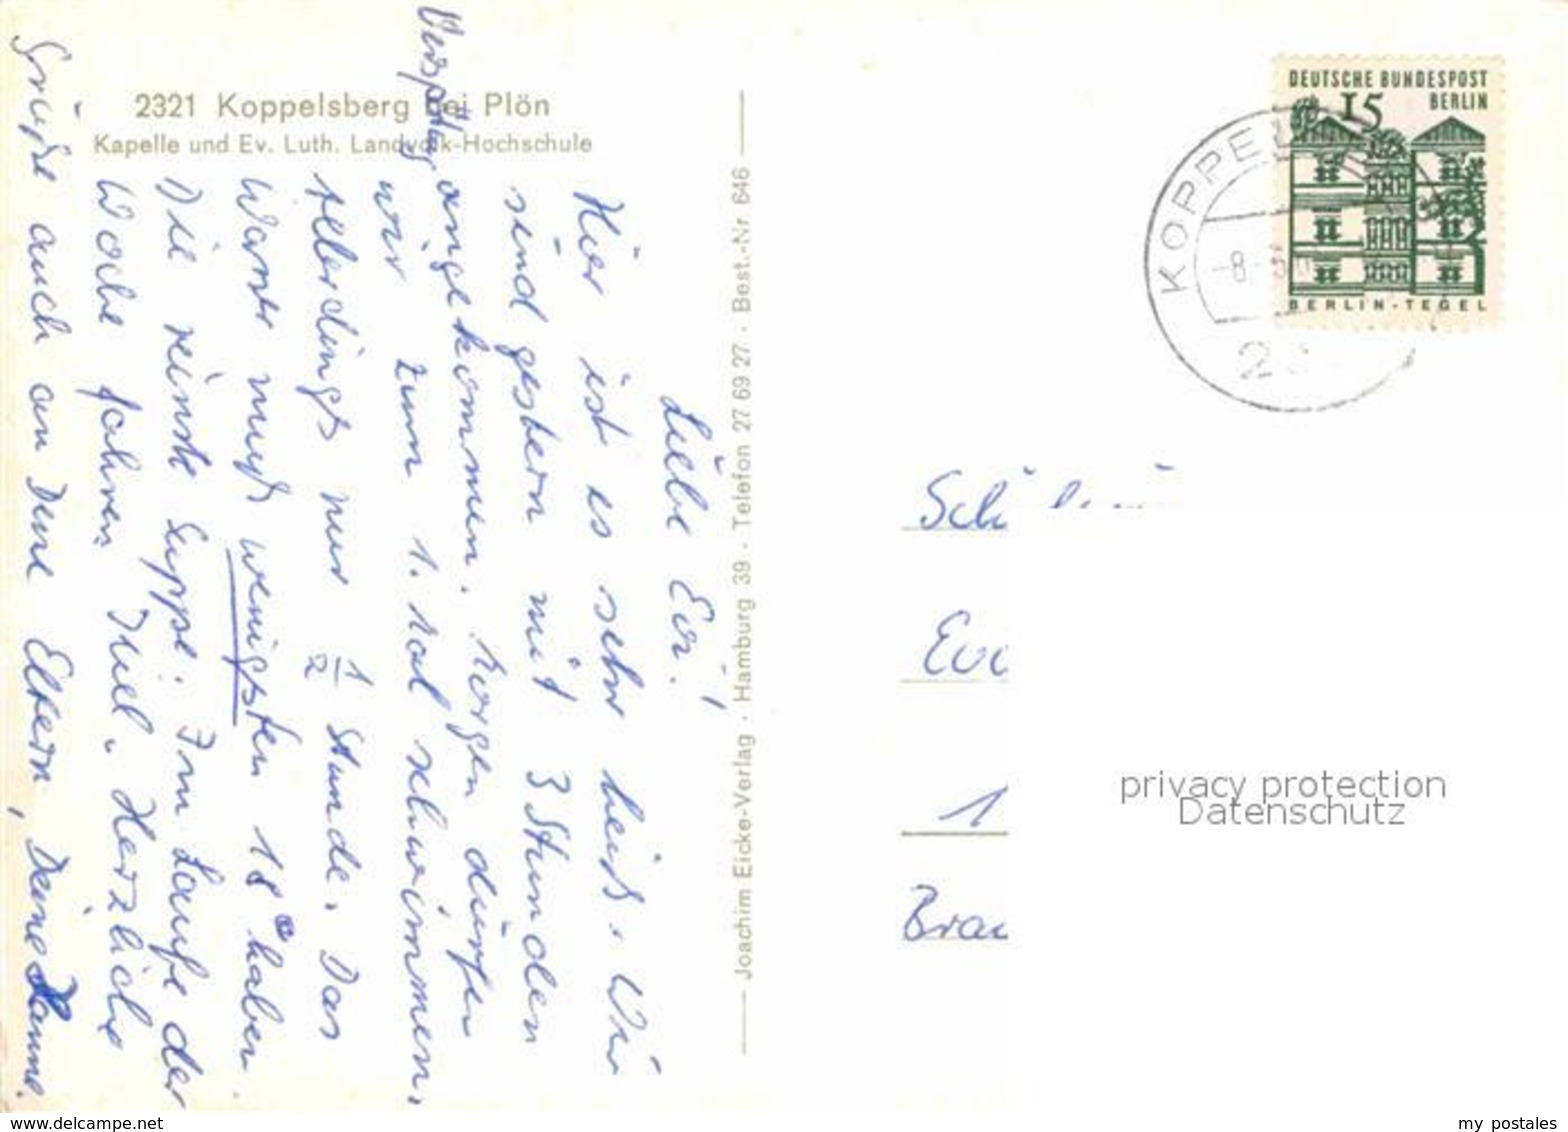 2321 Koppelsberg bei Plön
Kapelle und Ev. Luth. Landvolk-Hochschule
Liebe Evi!
Hier ist es sehr heiß. Wir
sind gestern mit 3 Stunden
Verspätung angekommen. Morgen dürfen
wir zum 1. Mal schwimmen.
Allerdings nur 1/2 Stunde. Das
Wasser muß wenigsten 18° haben.
Die reinste Suppe. Im Laufe der
Woche fahren Kiel. Herzliche
Grüße auch an Deine Eltern, Deine Hanne.
Joachim Eicke-Verlag · Hamburg 39 · Telefon 27 69 27 · Best.-Nr 646
DEUTSCHE BUNDESPOST
BERLIN
15
BERLIN-TEGEL
KOPPEL
-8.
Evi
1
Brau
privacy protection
Datenschutz
www.delcampe.net
my postales